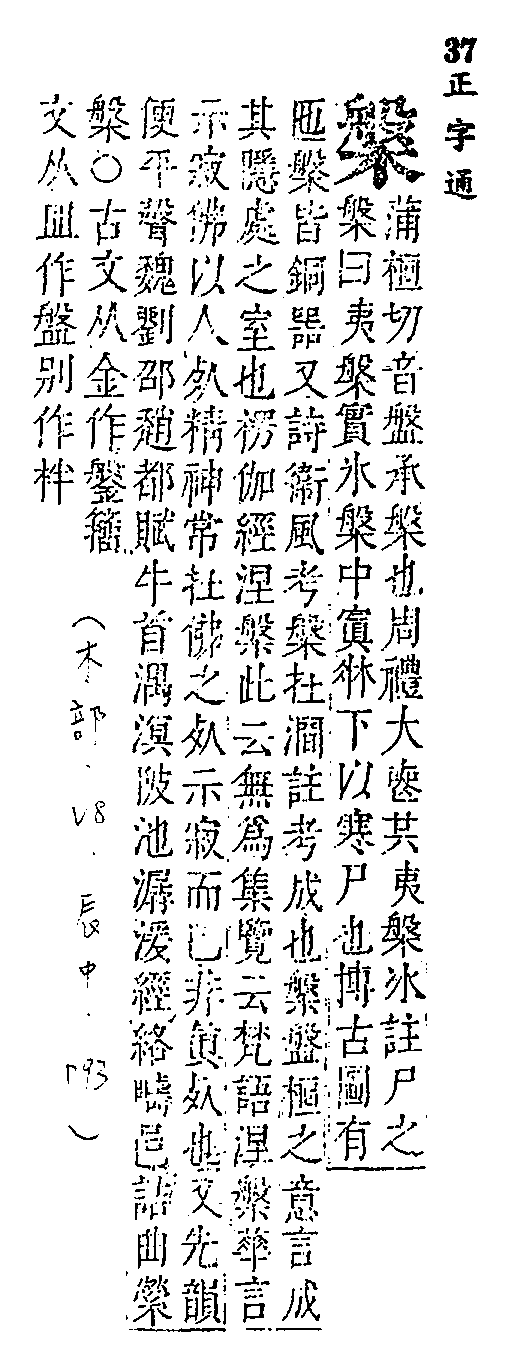 37正字通
槃
蒲桓切音盤承槃也周禮大喪共夷槃氷註尸之
槃曰夷槃實氷槃中寘牀下以寒尸也博古圖有
匜槃皆銅器又詩衞風考槃在澗註考成也槃盤桓之意言成
其隱處之室也楞伽經涅槃此云無爲集覽云梵語涅槃華言
示寂佛以人死精神常在佛之死示寂而已非眞死也又先韻
便平聲魏劉邵趙都賦牛首溟陂池潺湲經絡疇邑詰曲縈
槃○古文从金作鎜籒
文从皿作盤别作柈
（木部．V8．辰中．P93）